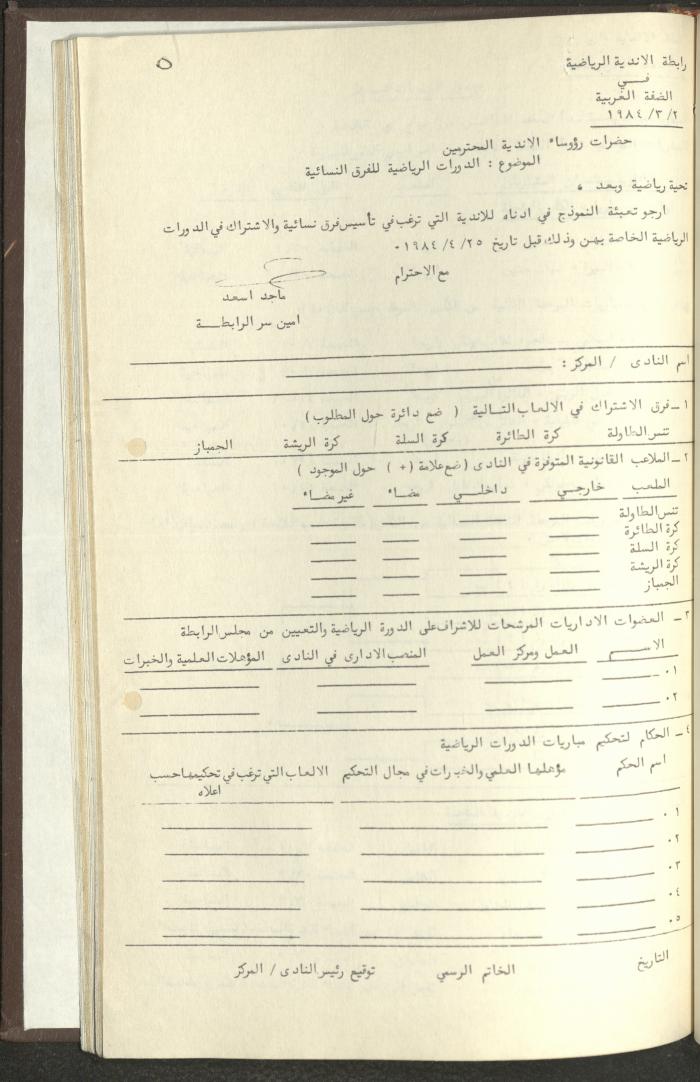 ٥
رابطة الاندية الرياضية
فـــي
الضفة الغربية
٢/ ٣/ ١٩٨٤
حضرات رؤوساء الاندية المحترمين
الموضوع : الدورات الرياضية للفرق النسائية
تحية رياضية وبعد ،
ارجو تعبئة النموذج في ادناه للاندية التي ترغب في تأسيس فرق نسائية والاشتراك في الدورات
الرياضية الخاصة بهن وذلك قبل تاريخ ٢٥/ ٤/ ١٩٨٤ ٠
مع الاحترام
ماجد اسعد
امين سر الرابطــة
اسم النادى / المركز :
١ـ فرق الاشتراك في الالعاب التـالية ( ضع دائرة حول المطلوب )
تنس الطاولة كرة الطائرة كرة السلة كرة الريشة الجمباز
٢ـ الملاعب القانونية المتوفرة في النادى ( ضع علامة ( + ) حول الموجود )
الملعب خارجــي داخلــي مضـاء غير مضـاء
تنس الطاولة
كرة الطائرة
كرة السلة
كرة الريشة
الجمباز
٣ـ العضوات الاداريات المرشحات للاشراف على الدورة الرياضية والتعيين من مجلس الرابطة
الاســـم العمل ومركز العمل المنصب الادارى في النادى المؤهلات العلمية والخبرات
٠١
٠٢
٤ـ الحكام لتحكيم مباريات الدورات الرياضية
اسم الحكم مؤهلها العلمي والخبرات في مجال التحكيم الالعاب التي ترغب في تحكيمها حسب
اعلاه
٠١
٠٢
٠٣
٠٤
٠٥
التاريخ الخاتم الرسمي توقيع رئيس النادى / المركز